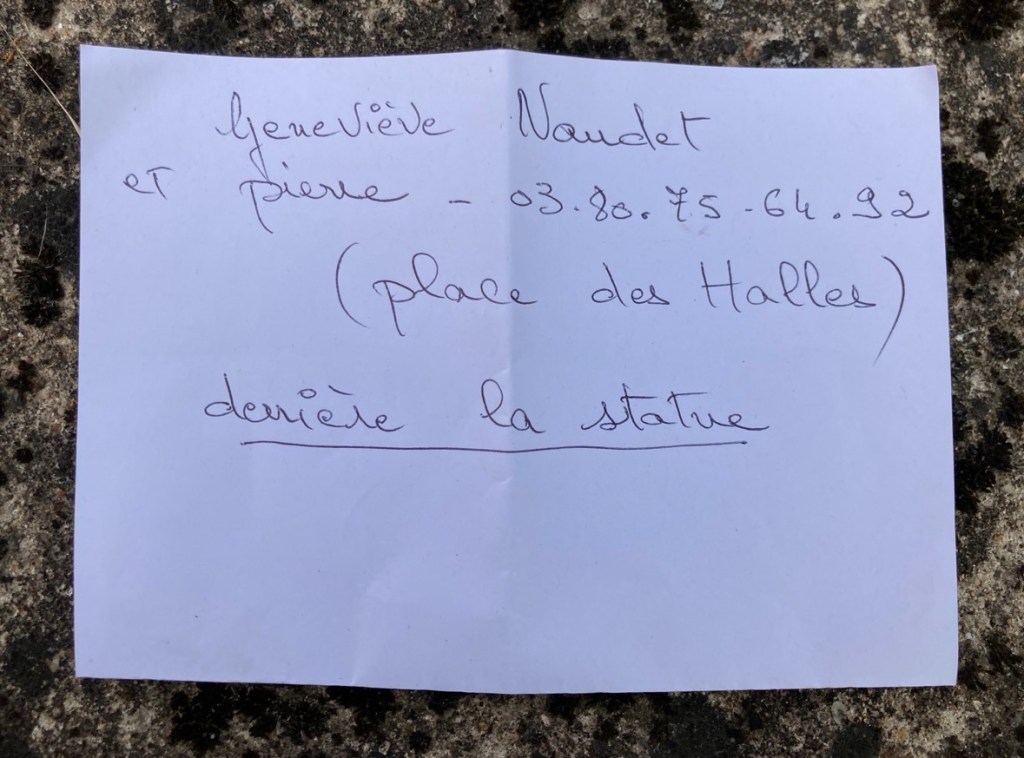 Geneviève Naudet
et pierre - 03.80.75-64.92
(place des Halles)
derrière la statue